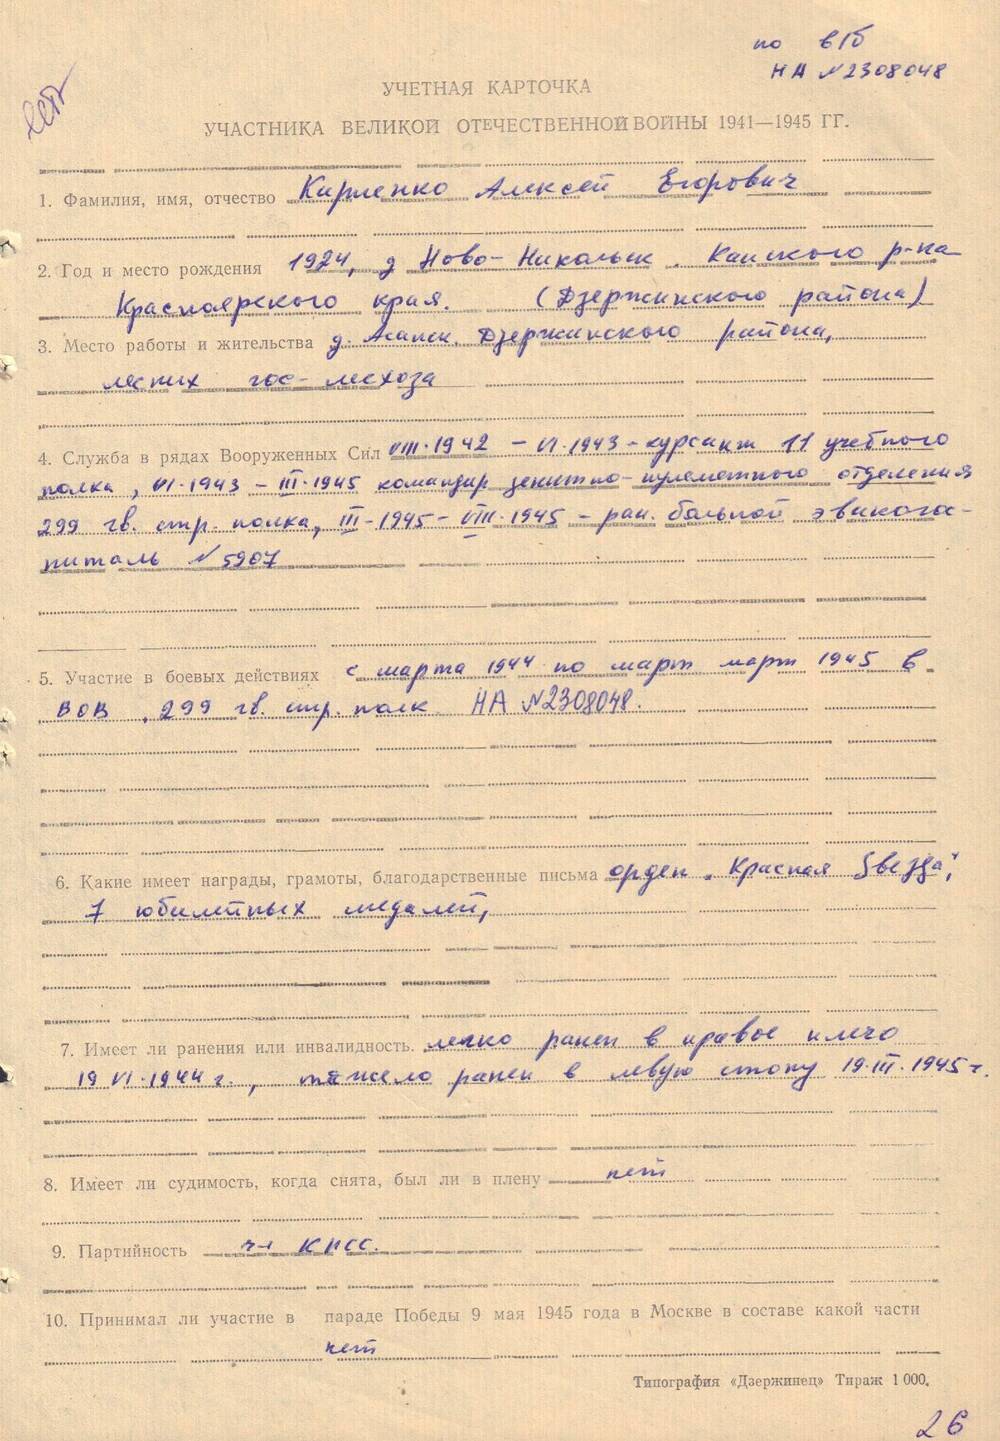 по вТб
НА №2308048
есть
УЧЕТНАЯ КАРТОЧКА
УЧАСТНИКА ВЕЛИКОЙ ОТЕЧЕСТВЕННОЙ ВОЙНЫ 1941—1945 ГГ.
1. Фамилия, имя, отчество Кириленко Алексей Егорович
2. Год и место рождения 1924, д Ново-Никольск. Канского р-на
Красноярского края. (Дзержинского района)
3. Место работы и жительства д. Асанск. Дзержинского района,
лесник гос-лесхоза
4. Служба в рядах Вооруженных Сил VIII.1942 – VI.1943 – курсант 11 учебного
полка, VI-1943 – III-1945 командир зенитно-пулеметного отделения
299 гв. стр. полка, III-1945 – VIII-1945 – ран. больной эвакогос-
питаль №5907
5. Участие в боевых действиях с марта 1944 по март март 1945 в
ВОВ, 299 гв. стр. полк НА №2308048.
6. Какие имеет награды, грамоты, благодарственные письма орден „Красная Звезда",
7 юбилейных медалей,
7. Имеет ли ранения или инвалидность. легко ранен в правое плечо
19 VI.1944 г., тяжело ранен в левую стопу 19.III.1945 г.
8. Имеет ли судимость, когда снята, был ли в плену нет
9. Партийность чл КПСС.
10. Принимал ли участие в параде Победы 9 мая 1945 года в Москве в составе какой части
нет
Типография «Дзержинец» Тираж 1 000.
26